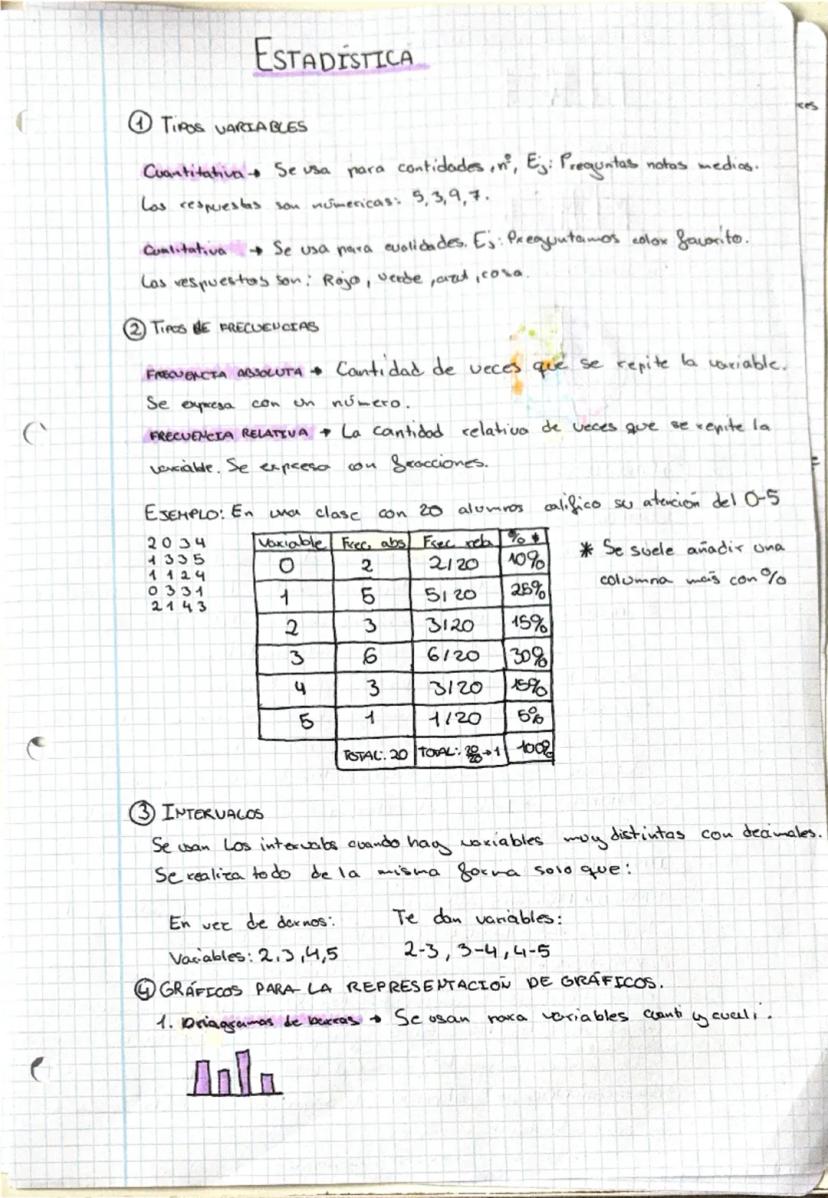 ESTADÍSTICA
① TIPOS VARIABLES
Cuantitativa → Se usa para cantidades, nº, Ej: Preguntas notas medias.
Las respuestas son númericas: 5,3,9,7.
Cualitativa → Se usa para cualidades. Ej: Preguntamos color favorito.
Las respuestas son: Rojo, verde, azul, rosa.
② TIPOS DE FRECUENCIAS
FRECUENCIA ABSOLUTA → Cantidad de veces que se repite la variable.
Se expresa con un número.
FRECUENCIA RELATIVA → La cantidad relativa de veces que se repite la
variable. Se expresa con fracciones.
EJEMPLO: En una clase con 20 alumnos califico su atención del 0-5
2 0 3 4
1 3 3 5
1 1 2 4
0 3 3 1
2 1 4 3
Variable Frec. abs Frec. rela % *
0 2 2/20 10%
1 5 5/20 25%
2 3 3/20 15%
3 6 6/20 30%
4 3 3/20 15%
5 1 1/20 5%
TOTAL: 20 TOTAL: 20/20 → 1 100%
* Se suele añadir una
columna más con %
③ INTERVALOS
Se usan los intervalos cuando hay variables muy distintas con decimales.
Se realiza todo de la misma forma solo que:
En vez de darnos: Te dan variables:
Variables: 2,3,4,5 2-3, 3-4, 4-5
④ GRÁFICOS PARA LA REPRESENTACIÓN DE GRÁFICOS.
1. Driagramas de barras → Se usan para variables cuanti y cuali.